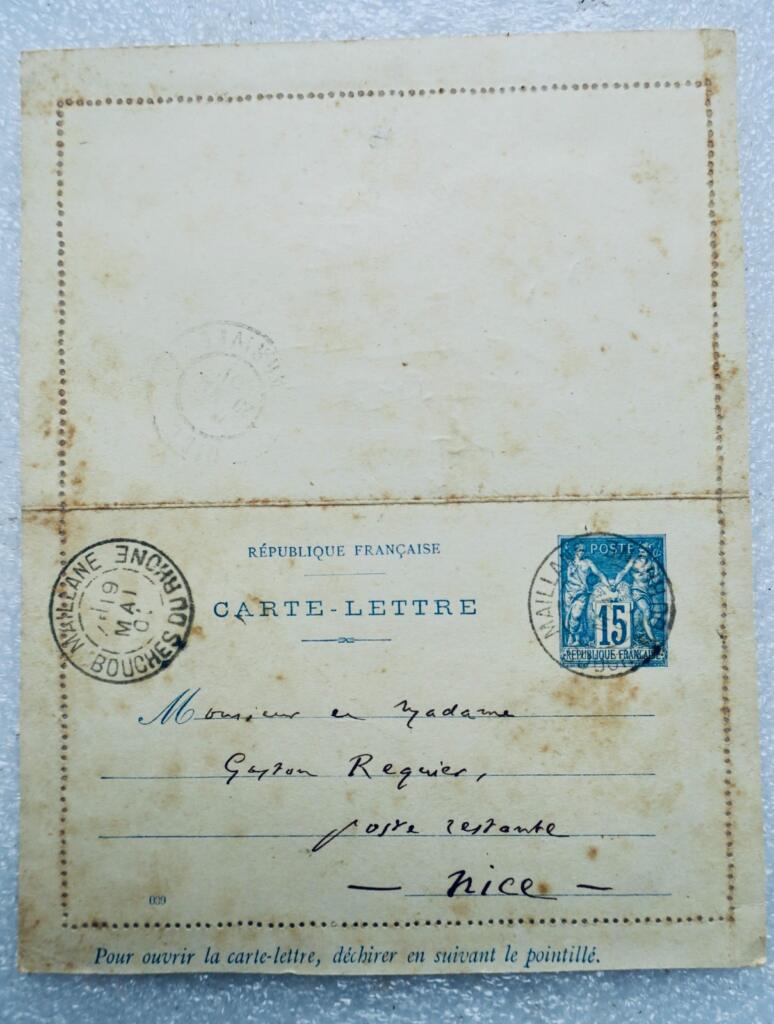 RÉPUBLIQUE FRANÇAISE
CARTE-LETTRE
MAILLANE BOUCHES DU RHONE
19
MAI
POSTE
15
RÉPUBLIQUE FRANÇAISE
MAILLA
Monsieur et Madame
Gaston Requier,
poste restante
— Nice —
039
Pour ouvrir la carte-lettre, déchirer en suivant le pointillé.